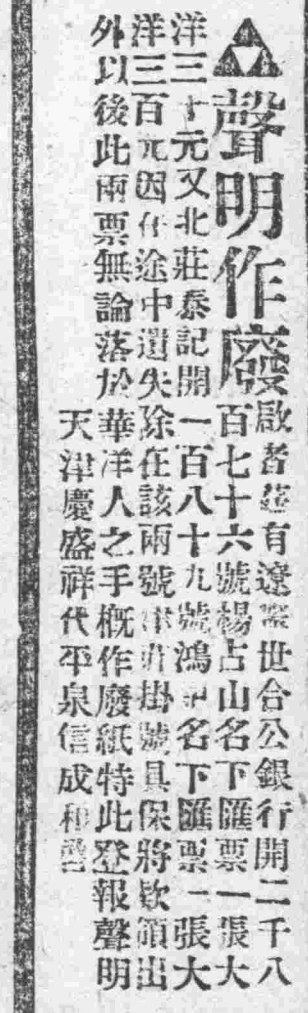 聲明作廢
啟者茲有遼寧世合公銀行開二千八
百七十六號楊占山名下匯票一張大
洋三元又北莊泰記開一百八十九號鴻名下匯票一張大
洋三百元因在途中遺失除在該兩號掛號具保將欵領出
外以後此兩票無論落於華洋人之手概作廢紙特此登報聲明
天津慶盛祥代平泉信成和啓